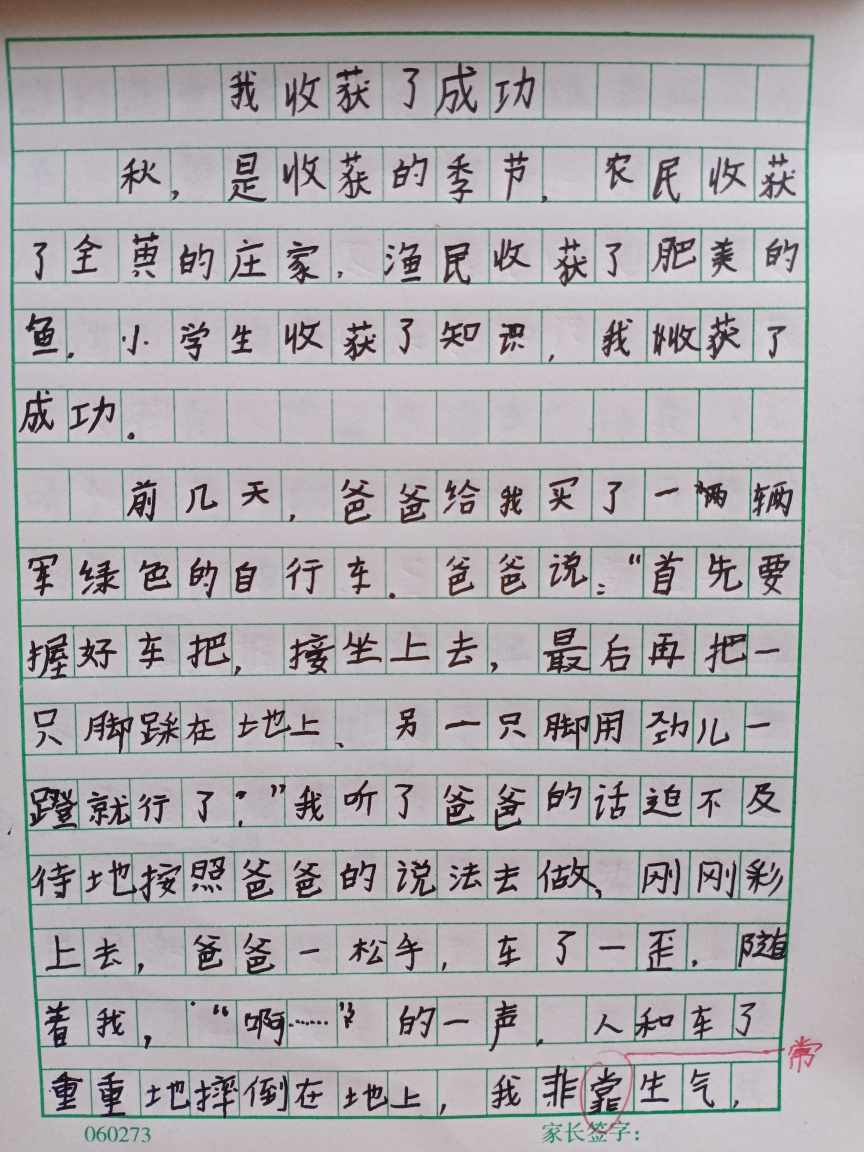 我收获了成功
秋，是收获的季节，农民收获
了全黄的庄家，渔民收获了肥美的
鱼．小学生收获了知识，我收获了
成功．
前几天，爸爸给我买了一辆辆
军绿色的自行车．爸爸说："首先要
握好车把，接坐上去，最后再把一
只脚踩在地上、另一只脚用劲儿一
蹬就行了；"我听了爸爸的话迫不及
待地按照爸爸的说法去做、刚刚彩
上去，爸爸一松手，车了一歪．随
着我，"啊……"的一声．人和车了
重重地摔倒在地上，我非靠生气，
常
060273
家长签字：